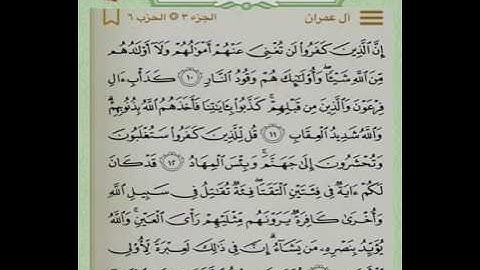 آل عمران الجزء ٣ الحزب ٦
إِنَّ ٱلَّذِينَ كَفَرُوا۟ لَن تُغْنِىَ عَنْهُمْ أَمْوَٰلُهُمْ وَلَآ أَوْلَٰدُهُم
مِّنَ ٱللَّهِ شَيْـًٔا ۖ وَأُو۟لَٰٓئِكَ هُمْ وَقُودُ ٱلنَّارِ ١٠ كَدَأْبِ ءَالِ
فِرْعَوْنَ وَٱلَّذِينَ مِن قَبْلِهِمْ ۚ كَذَّبُوا۟ بِـَٔايَٰتِنَا فَأَخَذَهُمُ ٱللَّهُ بِذُنُوبِهِمْ ۗ
وَٱللَّهُ شَدِيدُ ٱلْعِقَابِ ١١ قُل لِّلَّذِينَ كَفَرُوا۟ سَتُغْلَبُونَ
وَتُحْشَرُونَ إِلَىٰ جَهَنَّمَ ۚ وَبِئْسَ ٱلْمِهَادُ ١٢ قَدْ كَانَ
لَكُمْ ءَايَةٌ فِى فِئَتَيْنِ ٱلْتَقَتَا ۖ فِئَةٌ تُقَٰتِلُ فِى سَبِيلِ ٱللَّهِ
وَأُخْرَىٰ كَافِرَةٌ يَرَوْنَهُم مِّثْلَيْهِمْ رَأْىَ ٱلْعَيْنِ ۚ وَٱللَّهُ
يُؤَيِّدُ بِنَصْرِهِۦ مَن يَشَآءُ ۗ إِنَّ فِى ذَٰلِكَ لَعِبْرَةً لِّأُو۟لِى